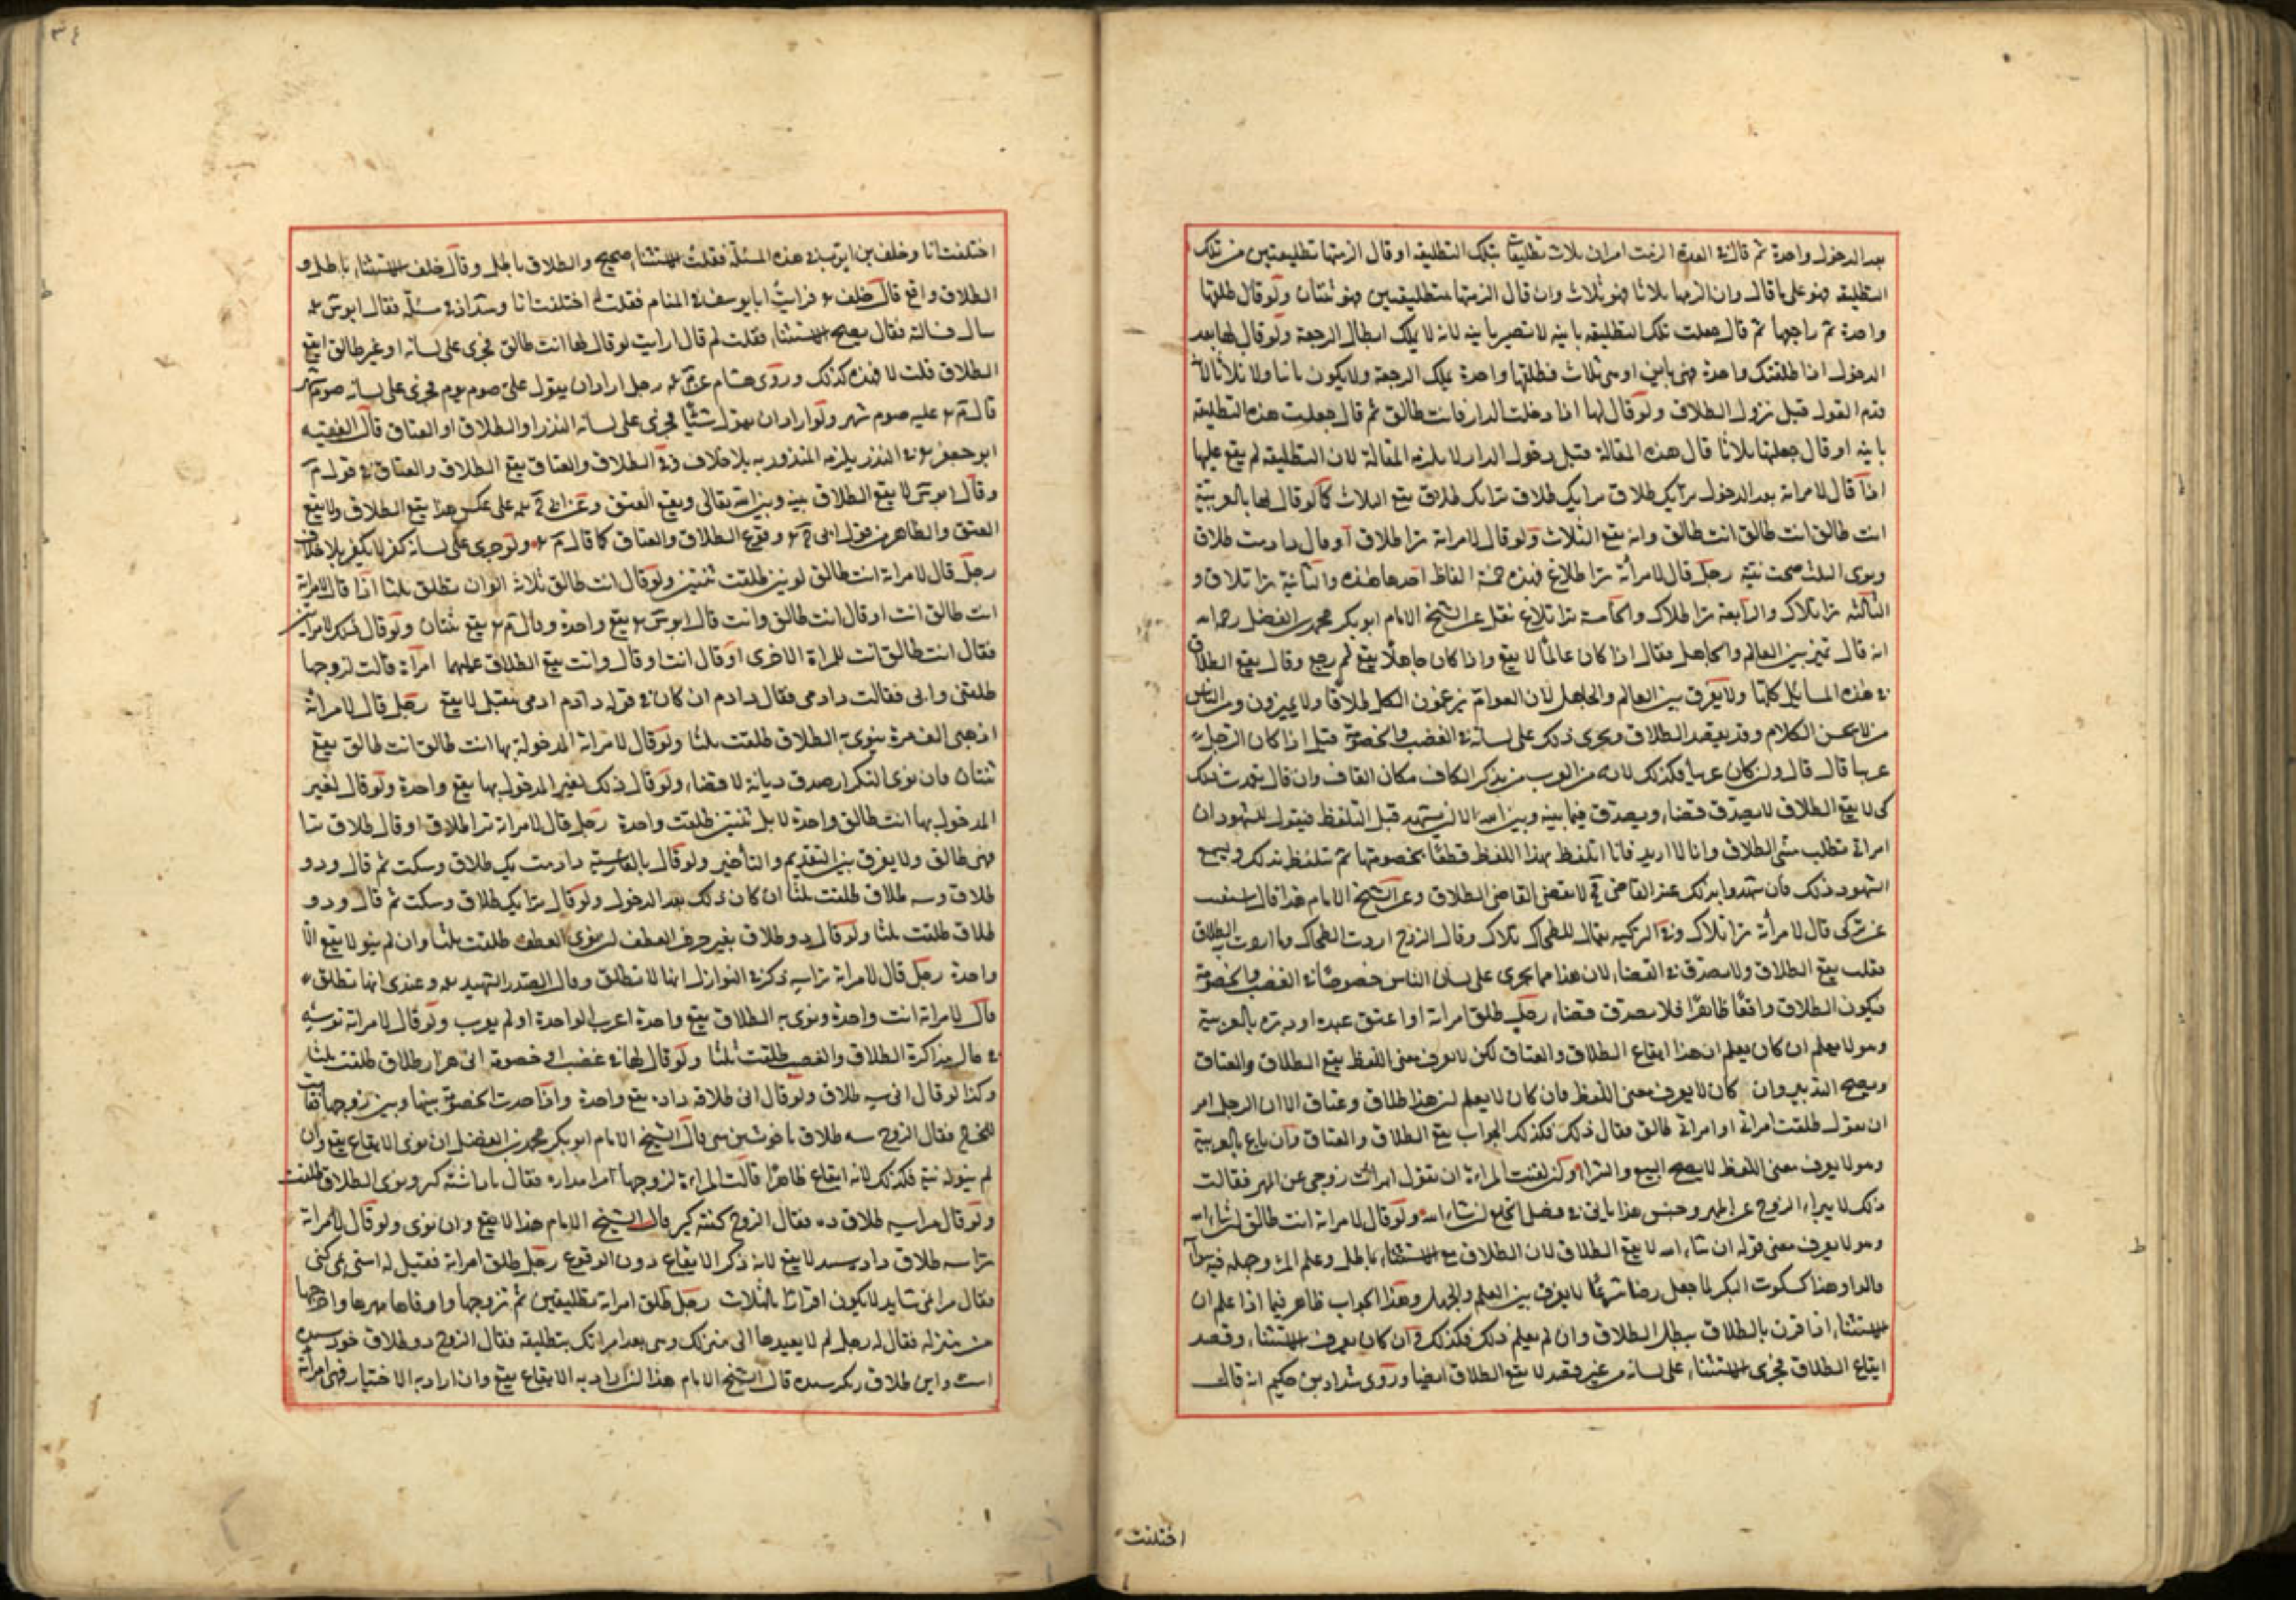 بعد الدخول واحدة ثم قال في العدة الزمت امراتي ثلاث تطليقات بتلك التطليقة او قال الزمتها تطليقتين من تلك
التطليقة فهو على ما قال وان الزمها ثلاثا فهو ثلاث وان قال الزمتها تطليقتين فهو ثنتان ولو قال طلقها
واحدة ثم راجعها ثم قال جعلت تلك التطليقة باينة لا تصير باينة لانه لا يملك ابطال الرجعة ولو قال لها بعد
الدخول اذا طلقتك واحدة فهي باين او هي ثلاث فطلقها واحدة يملك الرجعة ولا يكون باينا ولا ثلاثا لانه
قدم القول قبل نزول الطلاق ولو قال لها اذا دخلت الدار فانت طالق ثم قال جعلت هذه التطليقة
باينة او قال جعلتها ثلاثا قال هذه المقالة قبل دخول الدار لا يلزمه المقالة لان التطليقة لم يقع عليها
اذا قال لامراته بعد الدخول ترا يك طلاق ترا يك طلاق ترا يك طلاق يقع الثلاث كما لو قال لها بالعربية
انت طالق انت طالق انت طالق وانه يقع الثلاث ولو قال لامراته ترا طلاق او قال دادمت طلاق
ونوى الثلث صحت نيته رجل قال لامرأته ترا طلاغ فهذه خمسة الفاظ احدها هذه والثانية ترا تلاق و
الثالثة ترا تلاك والرابعة ترا طلاك والخامسة ترا تلاغ نقل عن الشيخ الامام ابو بكر محمد بن الفضل رحمه الله
انه قال تميز بين العالم والجاهل فقال اذا كان عالما لا يقع واذا كان جاهلا يقع ثم رجع وقال يقع الطلاق
في هذه المسايل كلها ولا يفرق بين العالم والجاهل لان العوام يزعمون الكل طلاقا ولا يميزون ومن الناس
من لا يحسن الكلام وقد يقصد الطلاق ويجري ذلك على لسانه في الغضب والخصومة قيل اذا كان الرجل
عربيا قال قال وان كان عربيا فكذلك لانه من العرب من يذكر الكاف مكان القاف وان قال تعمدت ذلك
كي لا يقع الطلاق لا يصدق قضاء ويصدق فيما بينه وبين الله الا ان يشهد قبل التلفظ فيقول للشهود ان
امراتي تطلب مني الطلاق وانا لا اريد فانا اتلفظ بهذا اللفظ قطعا لخصومتها ثم تلفظ بذلك ويسمع
الشهود ذلك فان شهدوا بذلك عند القاضي لا يقضي القاضي الطلاق وعن الشيخ الامام هذا قال
عن تركي قال لامرأته ترا تلاك وفي التركية يقال للطحال تلاك وقال الزوج اردت الطحال وما اردت الطلاق
فقلت يقع الطلاق ولا يصدق في القضاء لان هذا مما يجري على لسان الناس خصوصا في الغضب والخصومة
فيكون الطلاق واقعا ظاهرا فلا يصدق قضاء رجل طلق امراته او اعتق عبده او دبره بالعربية
وهو لا يعلم ان كان يعلم ان هذا ايقاع الطلاق والعتاق لكن لا يعرف معنى اللفظ يقع الطلاق والعتاق
ويصح التدبير وان كان لا يعرف معنى اللفظ فان كان لا يعلم ان هذا طلاق وعتاق الا ان الرجل امر
ان يقول طلقت امراتي او امراتي طالق فقال ذلك فكذلك الجواب يقع الطلاق والعتاق وان باع بالعربية
وهو لا يعرف معنى اللفظ لا يصح البيع والشرا وكذا لقنت المراة ان تقول ابرأت زوجي عن المهر فقالت
ذلك لا يبراء الزوج عن المهر وجنس هذا ياتي في فصل الخلع ان شاء الله ولو قال لامراته انت طالق ان شاء الله
وهو لا يعرف معنى قوله ان شاء الله لا يقع الطلاق لان الطلاق مع الاستثناء باطل وعلم المرء وجهله فيه سواء
والد وهذا كسكوت البكر لما جعل رضا شرعا لا يفرق بين العلم والجهل وهذا الجواب ظاهر فيما اذا علم ان
الاستثناء اذا قرن بالطلاق يبطل الطلاق وان لم يعلم ذلك فكذلك وان كان يعرف الاستثناء وقصد
ايقاع الطلاق فجرى الاستثناء على لسانه من غير قصد لا يقع الطلاق ايضا وروى شداد بن حكيم انه قال
اختلفت
٣٤
اختلفت انا وخلف بن ايوب في هذه المسئلة فقلت الاستثناء صحيح والطلاق باطل وقال خلف الاستثناء باطل و
الطلاق واقع قال خلف فرايت ابا يوسف في المنام فقلت له اختلفت انا وشداد في مسئلة فقال ابو يوسف
سال فسالته فقال يصح الاستثناء فقلت لم قال ارايت لو قال لها انت طالق فجرى على لسانه او غير طالق ايقع
الطلاق قلت لا فهذه كذلك وروى هشام عن م رجل اراد ان يقول علي صوم يوم فجرى على لسانه صوم شهر
قال م عليه صوم شهر ولو اراد ان يقول شيئا فجرى على لسانه النذر او الطلاق او العتاق قال الفقيه
ابو جعفر في النذر يلزمه المنذور به بلا خلاف وفي الطلاق والعتاق يقع الطلاق والعتاق في قول م
وقال ابو س لا يقع الطلاق بينه وبين الله تعالى ويقع العتق وعن على عكس هذا يقع الطلاق ولا يقع
العتق والظاهر من قول ابي ح وقوع الطلاق والعتاق كما قال م ولو جرى على لسانه كفر لا يكفر بلا خلاف
رجل قال لامراته انت طالق لونين طلقت ثنتين ولو قال انت طالق ثلاثة الوان تطلق ثلثا اذا قال لامراته
انت طالق انت او قال انت طالق وانت قال ابو س يقع واحدة وقال م يقع ثنتان ولو قال ذلك لامراتين
فقال انت طالق انت للمراة الاخرى او قال انت او قال وانت يقع الطلاق عليهما امرأة قالت لزوجها
طلقني وابى فقالت دادمي فقال دادم ان كان في قوله دادم ادمي لا يقع رجل قال لامراته
اذهبي الف مرة ينوي به الطلاق طلقت ثلثا ولو قال لامراته المدخولة بها انت طالق انت طالق يقع
ثنتان فان نوى التكرار صدق ديانة لا قضاء ولو قال ذلك لغير المدخول بها يقع واحدة ولو قال لغير
المدخول بها انت طالق واحدة لا بل ثنتين طلقت واحدة رجل قال لامراته ترا طلاق او قال طلاق ترا
فهي طالق ولا يفرق بين التقديم والتأخير ولو قال بالفارسية دادمت يك طلاق وسكت ثم قال ودو
طلاق وسه طلاق طلقت ثلثا ان كان ذلك بعد الدخول ولو قال ترا يك طلاق وسكت ثم قال ودو
طلاق طلقت ثلثا ولو قال دو طلاق بغير حرف العطف ان نوى العطف طلقت ثلثا وان لم ينو لا يقع الا
واحدة رجل قال لامراته ترا سه ذكر في النوازل انها لا تطلق وقال الصدر الشهيد وعندي انها تطلق
قال لامراته انت واحدة ونوى به الطلاق يقع واحدة اعرب الواحدة او لم يعرب ولو قال لامراته تو سه
في حال مذاكرة الطلاق والغضب طلقت ثلثا ولو قال لها في غضب او خصومة اي هزار طلاق طلقت ثلثا
وكذا لو قال اي سه طلاق ولو قال اي طلاق داده يقع واحدة واذا حدث الخصومة بينها وبين زوجها فقامت
لتخرج فقال الزوج سه طلاق با خويشتن قال الشيخ الامام ابو بكر محمد بن الفضل ان نوى الايقاع يقع وان
لم ينو له نية فكذلك لانه ايقاع ظاهرا قالت المراة لزوجها مرا مداره فقال ناداشته كير ونوى الطلاق طلقت
ولو قال مرا سه طلاق ده فقال الزوج كفته كير قال الشيخ الامام هذا لا يقع وان نوى ولو قال لامراته
ترا سه طلاق لا يقع لانه ذكر الايقاع دون الوقوع رجل طلق امراته فقيل له
فقال لا يكون اقرارا بالثلاث رجل طلق امراته تطليقتين ثم تزوجها واوفاها مهرها واخرجها
من منزله فقال له رجل لم لا يعيدها الى منزلك وهي بعد امراتك بتطليقة فقال الزوج دو طلاق خود
است واين طلاق ديكر قال الشيخ الامام هذا ان اراد به الايقاع يقع وان اراد به الاختيار فهي امراته